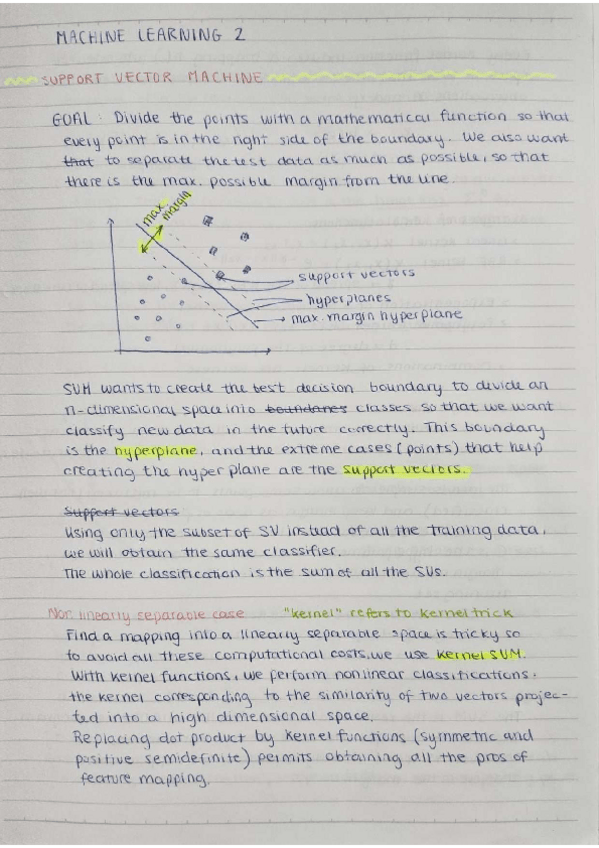 MACHINE LEARNING 2
SUPPORT VECTOR MACHINE
GOAL: Divide the points with a mathematical function so that
every point is in the right side of the boundary. We also want
that to separate the test data as much as possible, so that
there is the max. possible margin from the line.
max.
margin
support vectors
hyperplanes
max. margin hyperplane
SVM wants to create the best decision boundary to divide an
n-dimensional space into boundaries classes so that we want
classify new data in the future correctly. This boundary
is the hyperplane, and the extreme cases (points) that help
creating the hyper plane are the support vectors.
Support vectors
Using only the subset of SV instead of all the training data,
we will obtain the same classifier.
The whole classification is the sum of all the SVs.
Non linearly separable case "kernel" refers to kernel trick
Find a mapping into a linearly separable space is tricky so
to avoid all these computational costs, we use kernel SVM.
With kernel functions, we perform nonlinear classifications:
the kernel corresponding to the similarity of two vectors projec-
ted into a high dimensional space.
Replacing dot product by kernel functions (symmetric and
positive semidefinite) permits obtaining all the pros of
feature mapping.